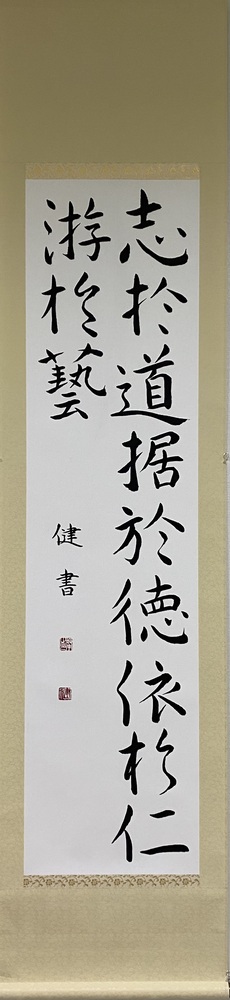 志於道据於徳依於仁
游於藝
健書